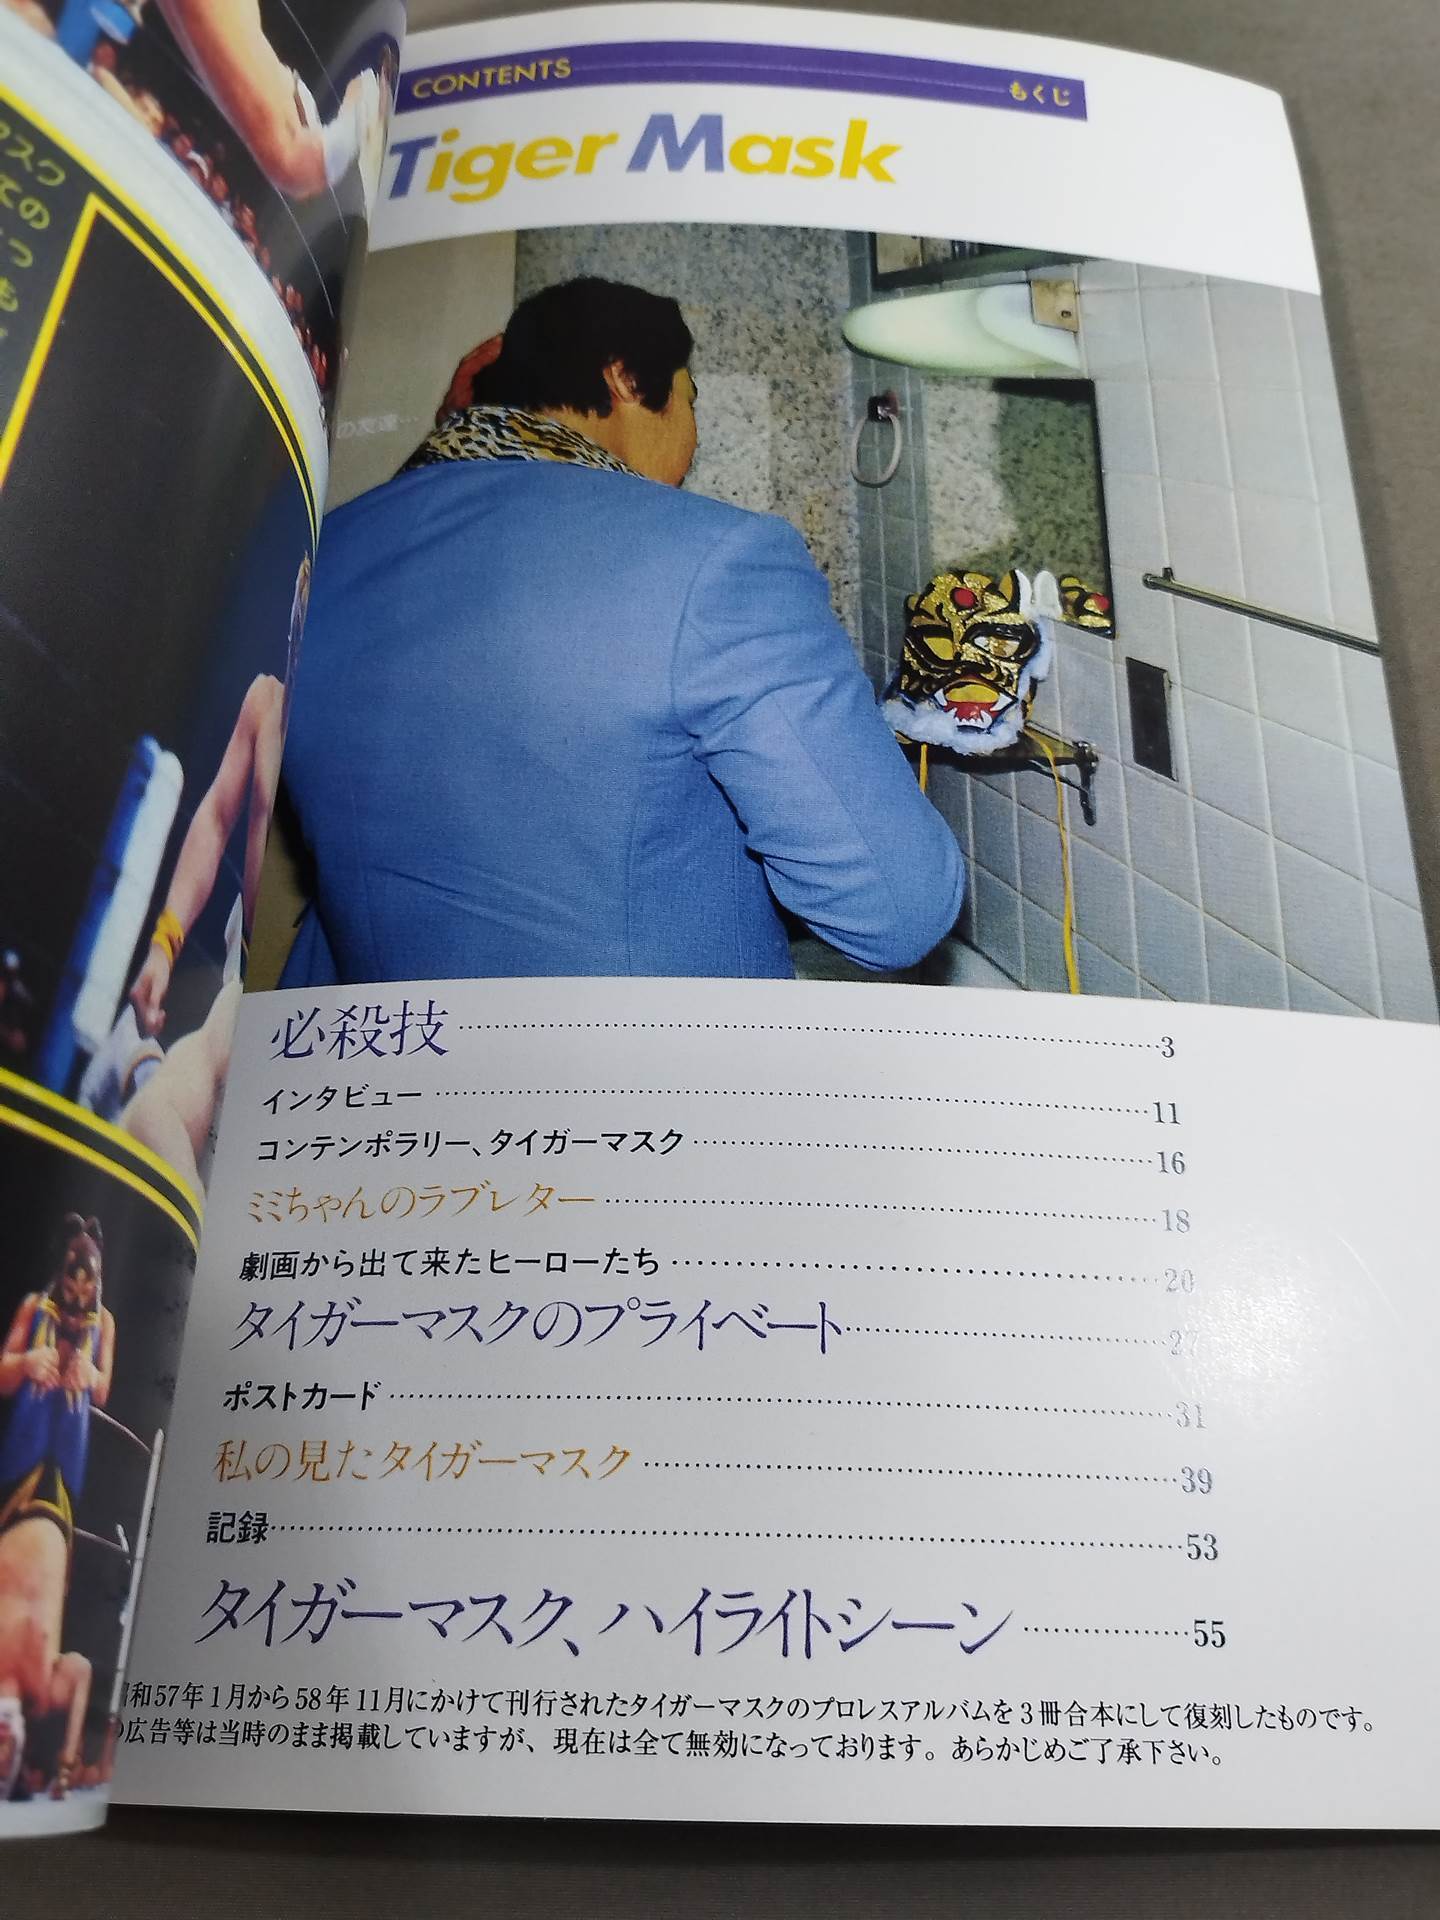 スク
ての
っ
も
の友達…
CONTENTS もくじ
Tiger Mask
必殺技 3
インタビュー 11
コンテンポラリー、タイガーマスク 16
ミミちゃんのラブレター 18
劇画から出て来たヒーローたち 20
タイガーマスクのプライベート 27
ポストカード 31
私の見たタイガーマスク 39
記録 53
タイガーマスク、ハイライトシーン 55
和57年1月から58年11月にかけて刊行されたタイガーマスクのプロレスアルバムを3冊合本にして復刻したものです。
広告等は当時のまま掲載していますが、現在は全て無効になっております。あらかじめご了承下さい。